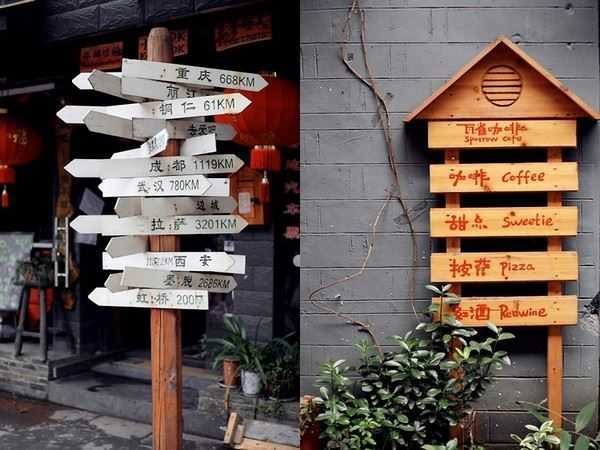 重庆 668KM
丽江
铜仁 61KM
成都 1119KM
武汉 780KM
边城
拉萨 3201KM
西安
墨脱 2686KM
虹桥 200米
瓦雀咖啡
Sparrow cafe
咖啡 Coffee
甜点 Sweetie
披萨 Pizza
红酒 Redwine